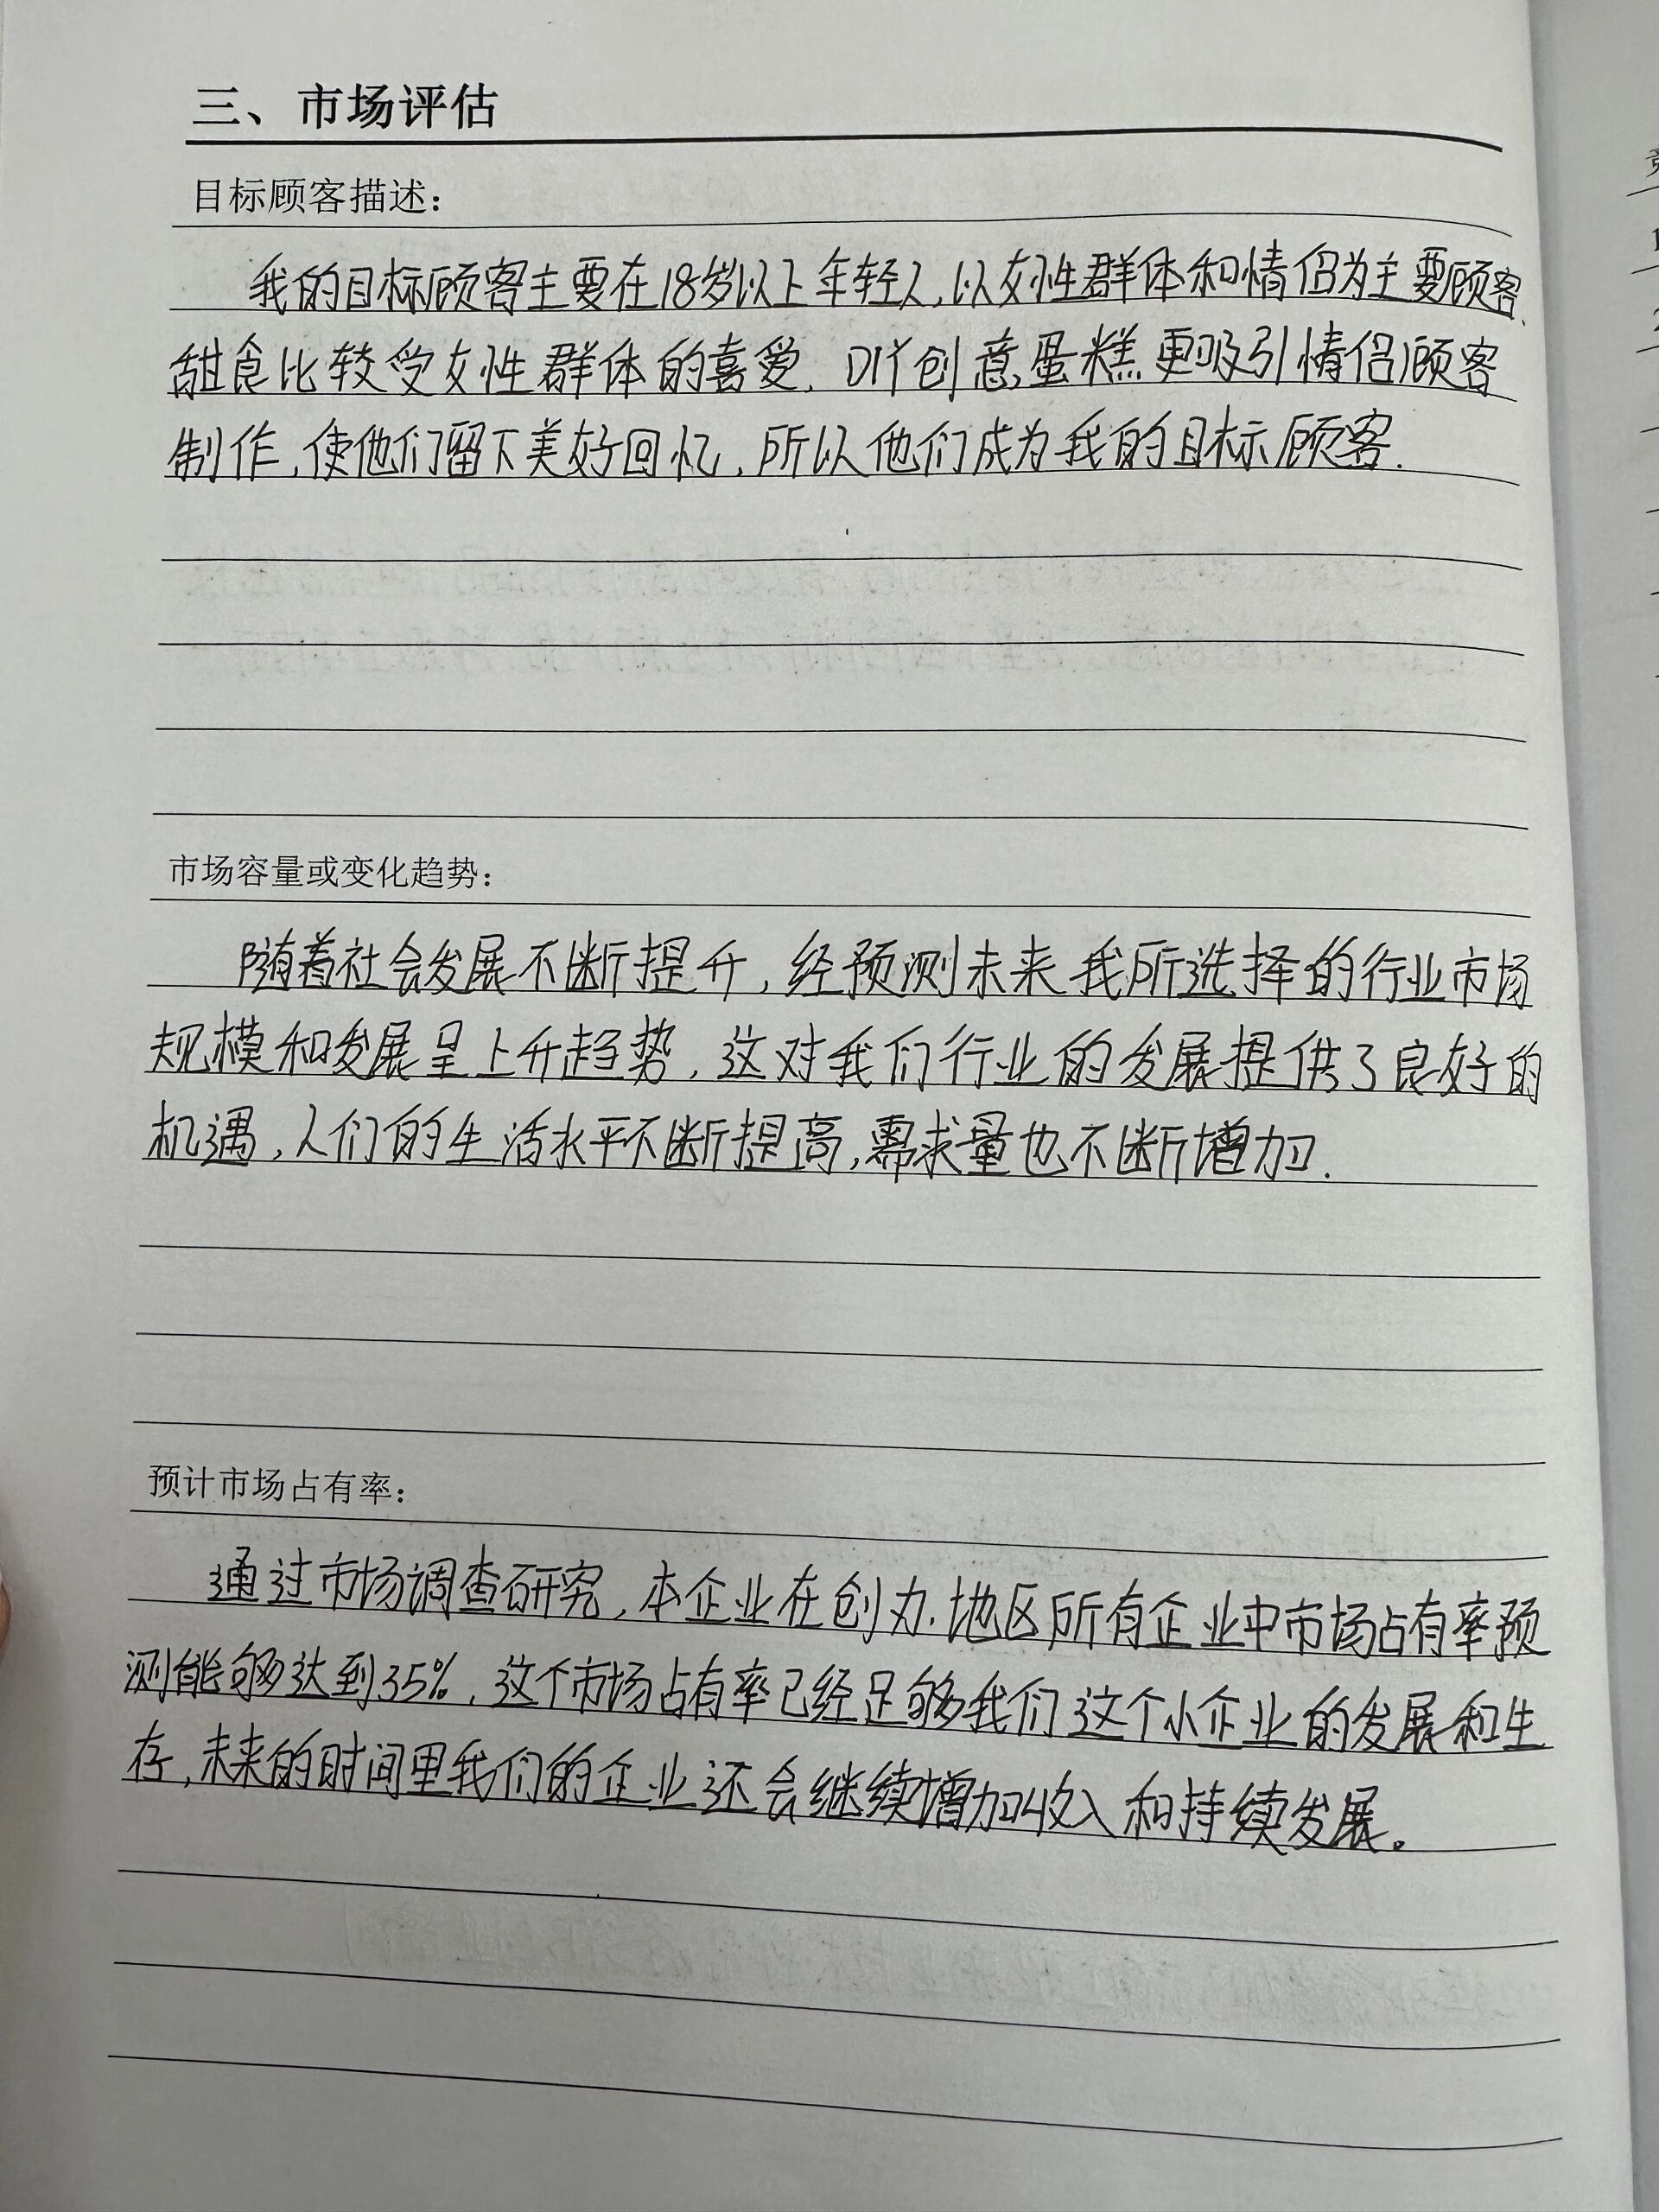 三、市场评估
目标顾客描述：
我的目标顾客主要在18岁以上年轻人，以女性群体和情侣为主要顾客.
甜食比较受女性群体的喜爱. DIY创意蛋糕更吸引情侣顾客
制作，使他们留下美好回忆，所以他们成为我的目标顾客.
市场容量或变化趋势：
随着社会发展不断提升，经预测未来我所选择的行业市场
规模和发展呈上升趋势，这对我们行业的发展提供了良好的
机遇，人们的生活水平不断提高，需求量也不断增加.
预计市场占有率：
通过市场调查研究，本企业在创办地区所有企业中市场占有率预
测能够达到35%，这个市场占有率已经足够我们这个小企业的发展和生
存，未来的时间里我们的企业还会继续增加收入和持续发展。